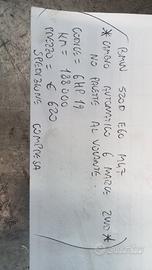 BMW 520D E60 M47
* CAMBIO AUTOMATICO 6 MARCE 2WD *
NO PALETTE AL VOLANTE.
CODICE = 6HP19
KM = 188000
PREZZO = € 620
SPEDIZIONE COMPRESA